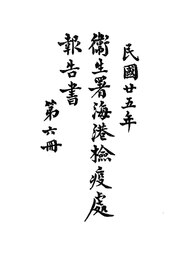 民國廿五年
衞生署海港檢疫處
報告書
第六冊